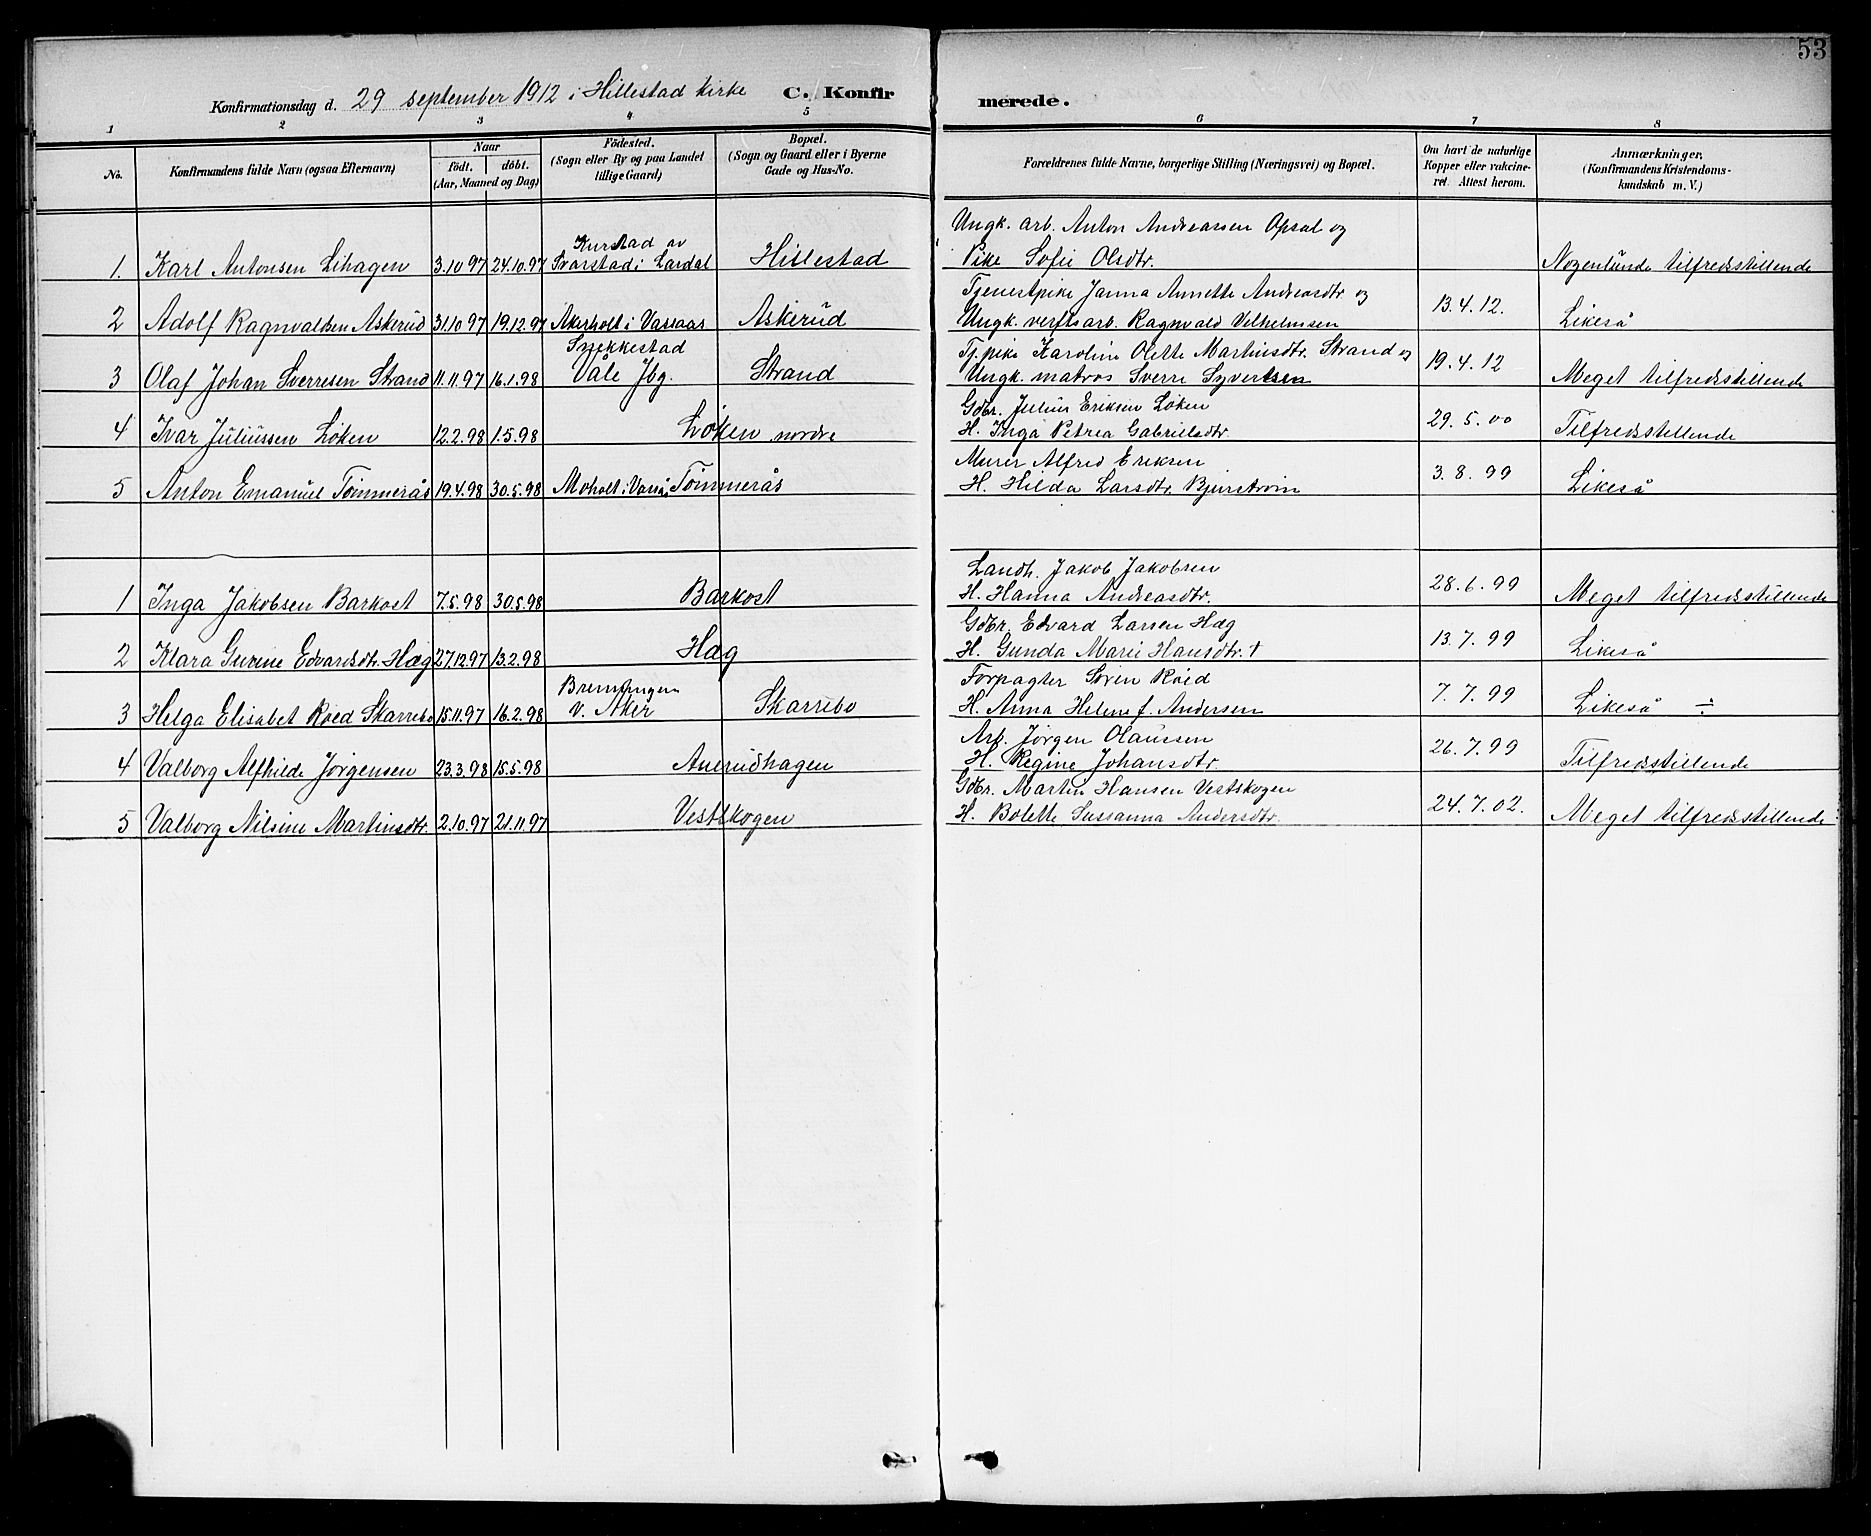 53
Konfirmationsdag d. 29 september 1912 i Hillestad kirke C. Konfirmerede.
1 2 3 4 5 6 7 8
No. Konfirmandens fulde Navn (ogsaa Efternavn) Naar födt. döbt. (Aar, Maaned og Dag) Födested. (Sogn eller By og paa Landet tillige Gaard) Bopæl. (Sogn og Gaard eller i Byerne Gade og Hus-No. Forældrenes fulde Navne, borgerlige Stilling (Næringsvei) og Bopæl. Om havt de naturlige Kopper eller vakcineret. Attest herom. Anmærkninger, (Konfirmandens Kristendomskundskab m. V.)
Ungk. arb. Anton Andreassen Opsal og
1. Karl Antonsen Lihagen 3.10 97 24.10.97 Kurstad av Svarstad i Lardal Hillestad Pike Sofie Olsdtr. Nogenlunde tilfredsstillende
Tjenestpike Janna Annette Andreasdtr og
2 Adolf Ragnvaldsen Askerud 31.10 97 19.12.97 Akerholt i Vassaas Askerud Ungk. verftsarb. Ragnvald Vilhelmsen 13.4.12. Likeså
Tj.pike Karoline Olette Martinsdtr. Strand og
3 Olaf Johan Sverresen Strand 11.11.97 16.1.98 Snekkestad Våle Jbg. Strand Ungk. matros Sverre Syvertsen 19.4.12 Meget tilfredsstillende
Gdbr. Julius Eriksen Löken
4 Ivar Juliussen Löken 12.2.98 1.5.98 Löken nordre H. Inga Petrea Gabrielsdtr. 29.5.00 Tilfredsstillende
Murer Alfred Eriksen
5 Anton Emanuel Tömmerås 19.4.98 30.5.98 Moholt i Vassås Tömmerås H. Hilda Larsdtr. Bjurström 3.8.99 Likeså
Landh. Jakob Jakobsen
1 Inga Jakobsen Barkost 7.5.98 30.5.98 Barkost H. Hanna Andreasdtr. 28.6.99 Meget tilfredsstillende
Gdbr. Edvard Larsen Hæg
2 Klara Gurine Edvardsdtr. Hæg 27.12.97 13.2.98 Hæg H. Gunda Marie Hansdtr. † 13.7.99 Likeså
Forpagter Sören Röed
3 Helga Elisabet Röed Skarrebo 15.11.97 16.2.98 v. Aker Skarrebo H. Anna Helene f. Andersen 7.7.99 Likeså ÷
Arb. Jörgen Olaussen
4 Valborg Alfhilde Jörgensen 23.3.98 15.5.98 Anerudhagen H. Regine Johansdtr. 26.7.99 Tilfredsstillende
Gdbr. Martin Hansen Vestskogen
5 Valborg Nilsine Martinsdtr. 2.10.97 21.11.97 Vestskogen H. Bolette Sussanna Andersdtr. 24.7.02. Meget tilfredsstillende